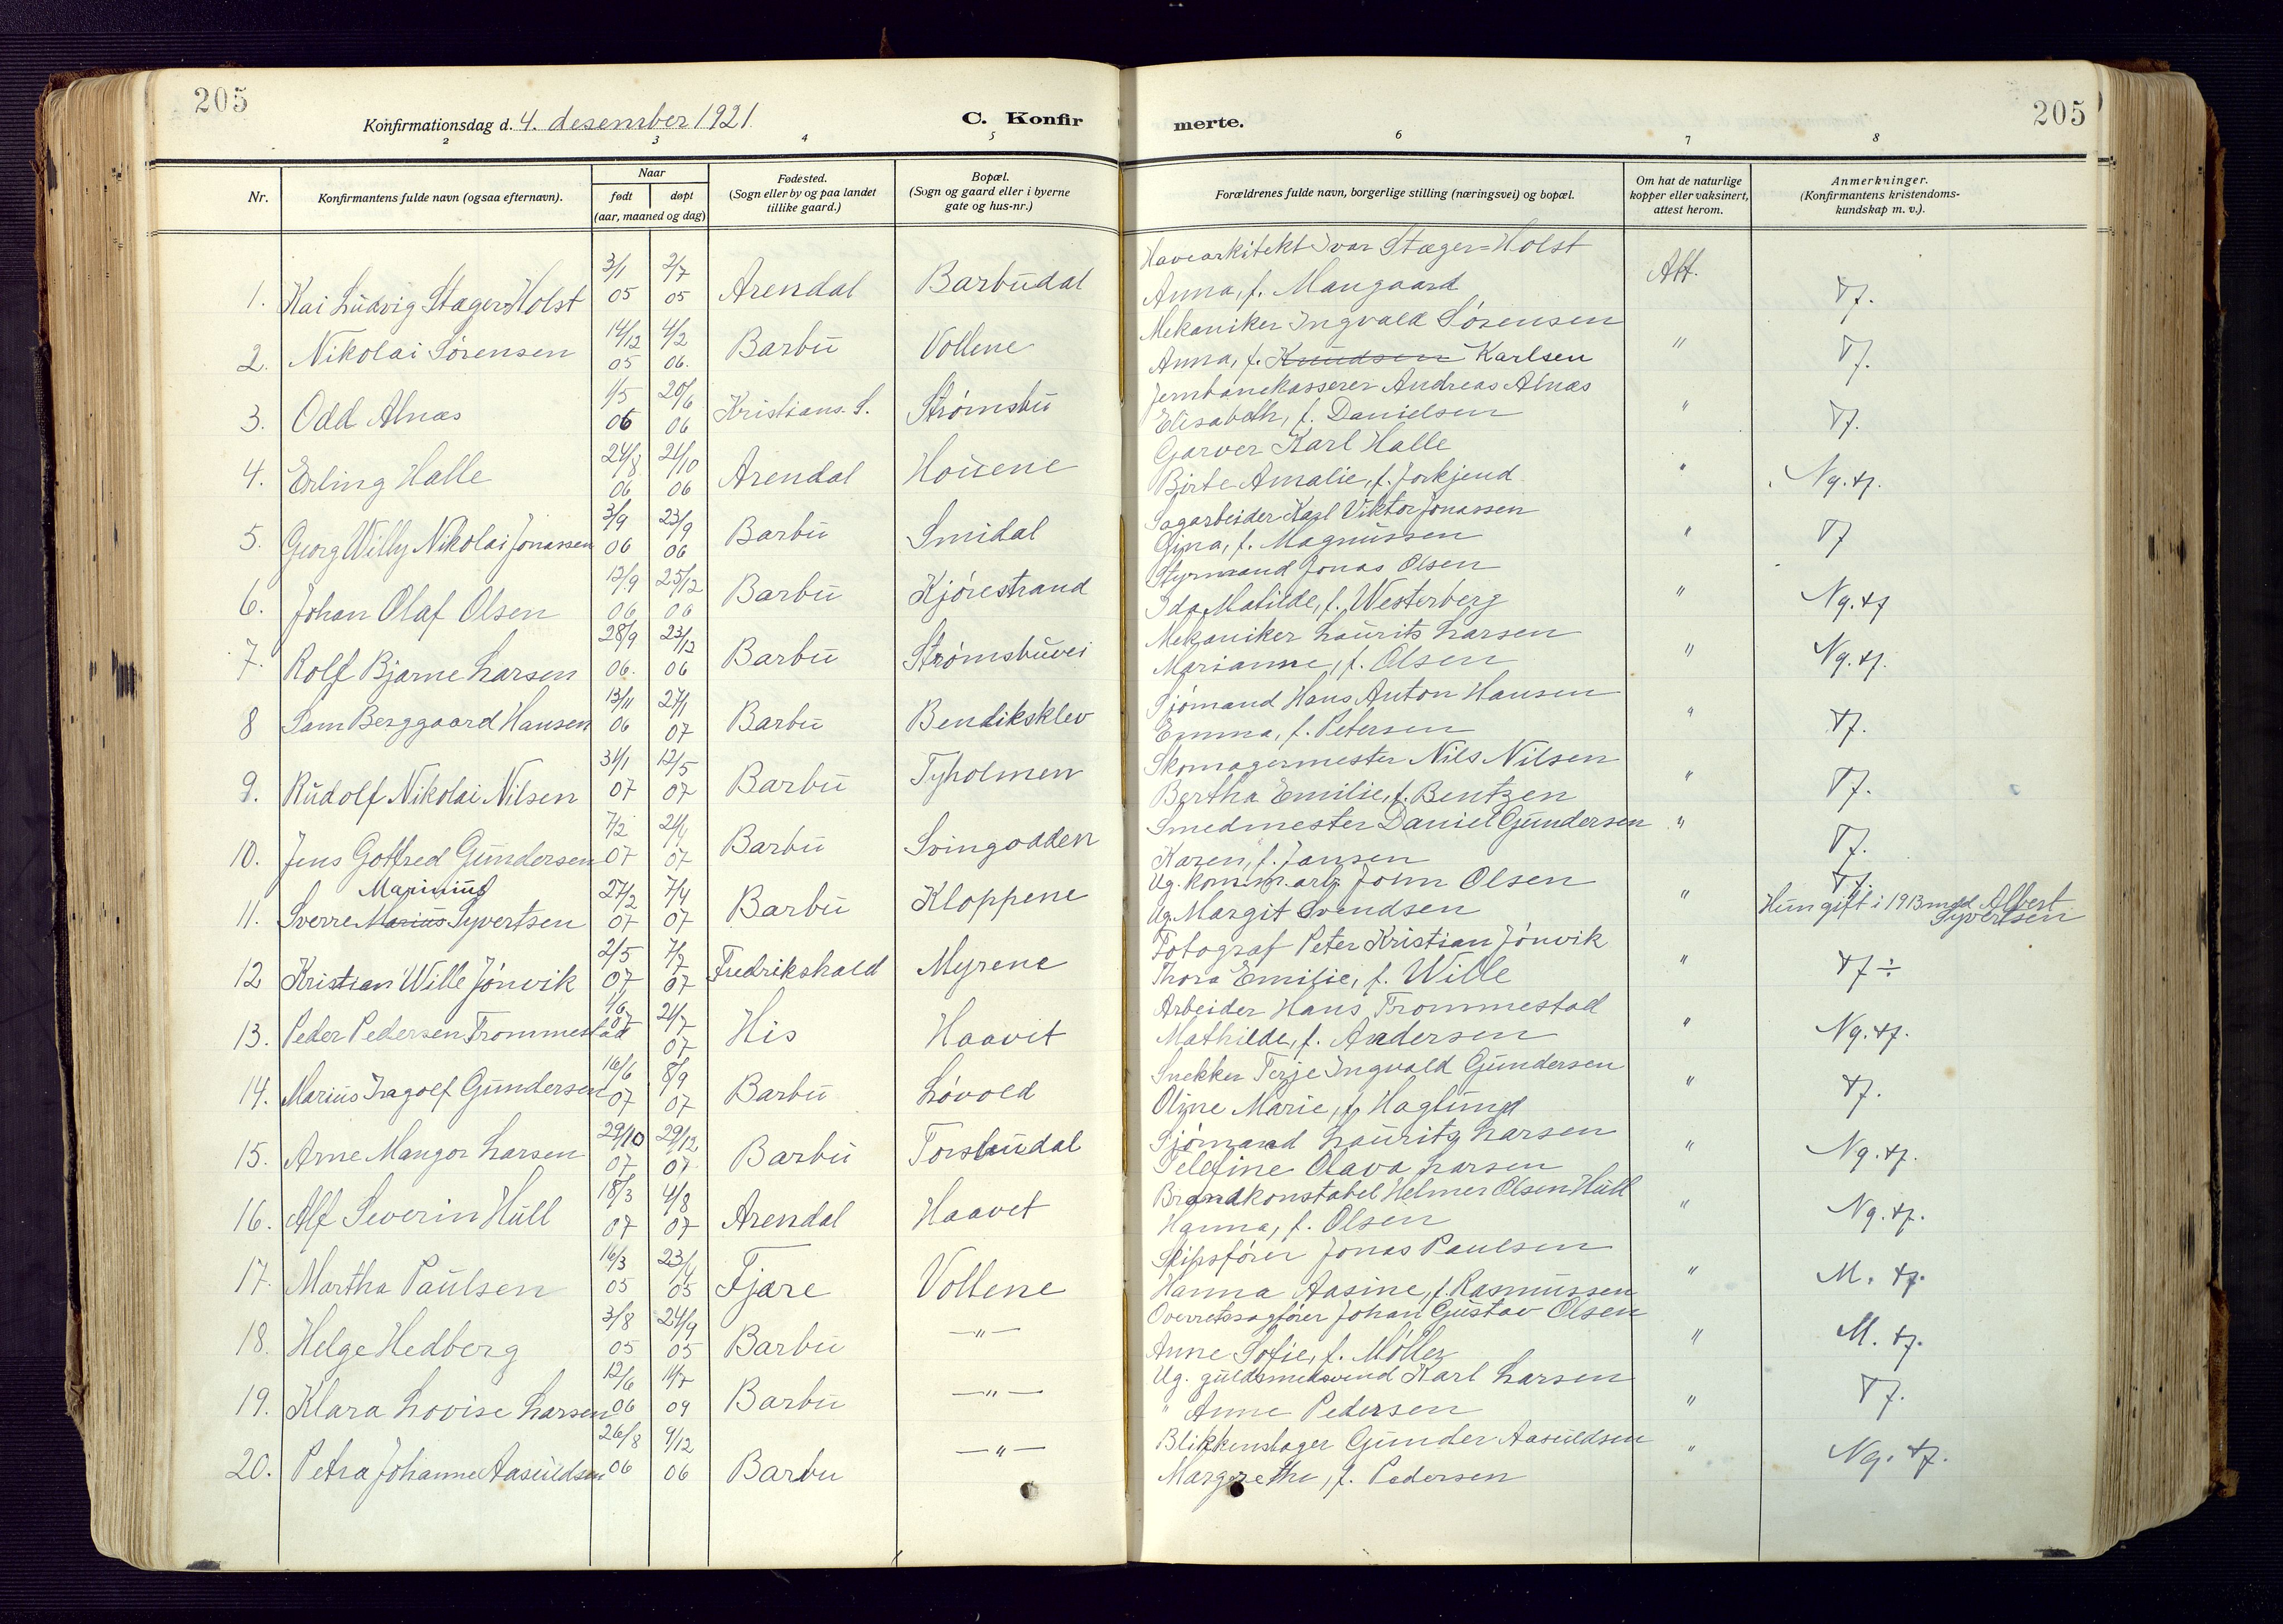 205
Konfirmationsdag d. 4. desember 1921.
C. Konfir
merte.
205
2 3 4 5 6 7 8
Nr.
Konfirmantens fulde navn (ogsaa efternavn).
Naar
født
døpt
(aar, maaned og dag)
Fødested.
(Sogn eller by og paa landet
tillike gaard.)
Bopæl.
(Sogn og gaard eller i byerne
gate og hus-nr.)
Forældrenes fulde navn, borgerlige stilling (næringsvei) og bopæl.
Om hat de naturlige
kopper eller vaksinert,
attest herom.
Anmerkninger.
(Konfirmantens kristendoms-
kundskap m. v.).
1. Kai Ludvig Stæger=Holst 3/1 05 2/7 05 Arendal Barbudal
Havearkitekt Ivar Stæger=Holst
Anna, f. Mangaard Att. Tf.
2. Nikolai Sørensen 14/12 05 4/2 06. Barbu Vollene
Mekaniker Ingvald Sørensen
Anna, f. Knudsen Karlsen " Tf.
3. Odd Alnæs 1/5 06 20/6 06 Kristians. S. Strømsbu
Jernbanekasserer Andreas Alnæs
Elisabeth, f. Danielsen " Tf.
4. Erling Halle 24/8 06 21/10 06 Arendal Houene
Garver Karl Halle
Birte Amalie, f. Jorkjend " Ng. tf.
5. Georg Willy Nikolai Jonassen 3/9 06 23/9 06 Barbu Smidal
Sagarbeider Karl Viktor Jonassen
Gina, f. Magnussen " Tf
6. Johan Olaf Olsen 12/9 06 25/12 06 Barbu Kjørestrand
Styrmand Jonas Olsen
Ida Matilde, f. Westerberg " Ng. tf
7. Rolf Bjarne Larsen 28/9 06. 23/12 06 Barbu Strømsbuvei
Mekaniker Laurits Larsen
Marianne, f. Olsen " Ng. tf.
8 Sam Berggaard Hansen 13/11 06 27/1 07 Barbu Bendiksklev
Sjømand Hans Anton Hansen
Emma, f. Petersen " tf.
9. Rudolf Nikolai Nilsen 31/1 07 12/5 07 Barbu Tyholmen
Skomagermester Nils Nilsen
Bertha Emilie, f. Bentzen " Tf.
10. Jens Gotfred Gundersen 7/2 07 21/4 07 Barbu Svingodden
Smedmester Daniel Gundersen
Karen, f. Jansen " Tf.
Marinius
11. Sverre Marius Syvertsen 27/2 07 7/4 07 Barbu Kloppene
Ug. komm. arb. John Olsen
Ug. Margit Svendsen " Tf.
Hun gift i 1913 med Albert
Syvertsen
12 Kristian Wille Jónvik 2/5 07 7/7 07 Fredrikshald Myrene
Fotograf Peter Kristian Jónvik
Thora Emilie, f. Wille " tf ÷
13. Peder Pedersen Trommestad 1/6 07 21/7 07 His Haavet
Arbeider Hans Trommestad
Mathilde, f. Andersen " Ng. tf.
14. Marius Ingolf Gundersen 16/6 07 8/9 07 Barbu Løvold
Snekker Terje Ingvald Gundersen
Oline Marie, f. Haglund " tf.
15. Arne Mangor Larsen 29/10 07 29/12 07 Barbu Torsbudal
Sjømand Lauritz Larsen
Telefine Olava Larsen " Ng. tf.
16. Alf Severin Hüll 18/3 07 4/8 07 Arendal Haavet
Brandkonstabel Helmer Olsen Hüll
Hanna, f. Olsen " Ng. tf.
17. Martha Paulsen 16/3 05 23/4 05 Fjære Vollene
Skipsfører Jonas Paulsen
Hanna Aasine, f. Rasmussen " M. tf.
18. Helge Hedberg 3/8 05 24/9 05 Barbu —"—
Overretssagfører Johan Gustav Olsen
Anne Sofie, f. Møller " M. tf.
19. Klara Lovise Larsen 12/6 06 11/7 09 Barbu —"—
Ug. guldsmedsvend Karl Larsen
" Anne Pedersen " Tf.
20. Petra Johanne Aasuldsen 26/8 06 9/12 06 Barbu —"—
Blikkenslager Gunder Aasuldsen
Margrethe, f. Pedersen " Ng. tf.